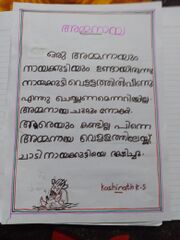 അമ്മനായ
ഒരു അമ്മനായും
നായക്കുട്ടിയും ഉണ്ടായിരുന്നു
നായക്കുട്ടി വെള്ളത്തിൽ വീണു
എന്തു ചെയ്യണമെന്നറിയില്ല
അമ്മനായ ചുറ്റും നോക്കി.
ആരെയും കണ്ടില്ല പിന്നെ
അമ്മനായ വെള്ളത്തിലേയ്ക്ക്
ചാടി നായക്കുട്ടിയെ രക്ഷിച്ചു.
Kashinath K-S